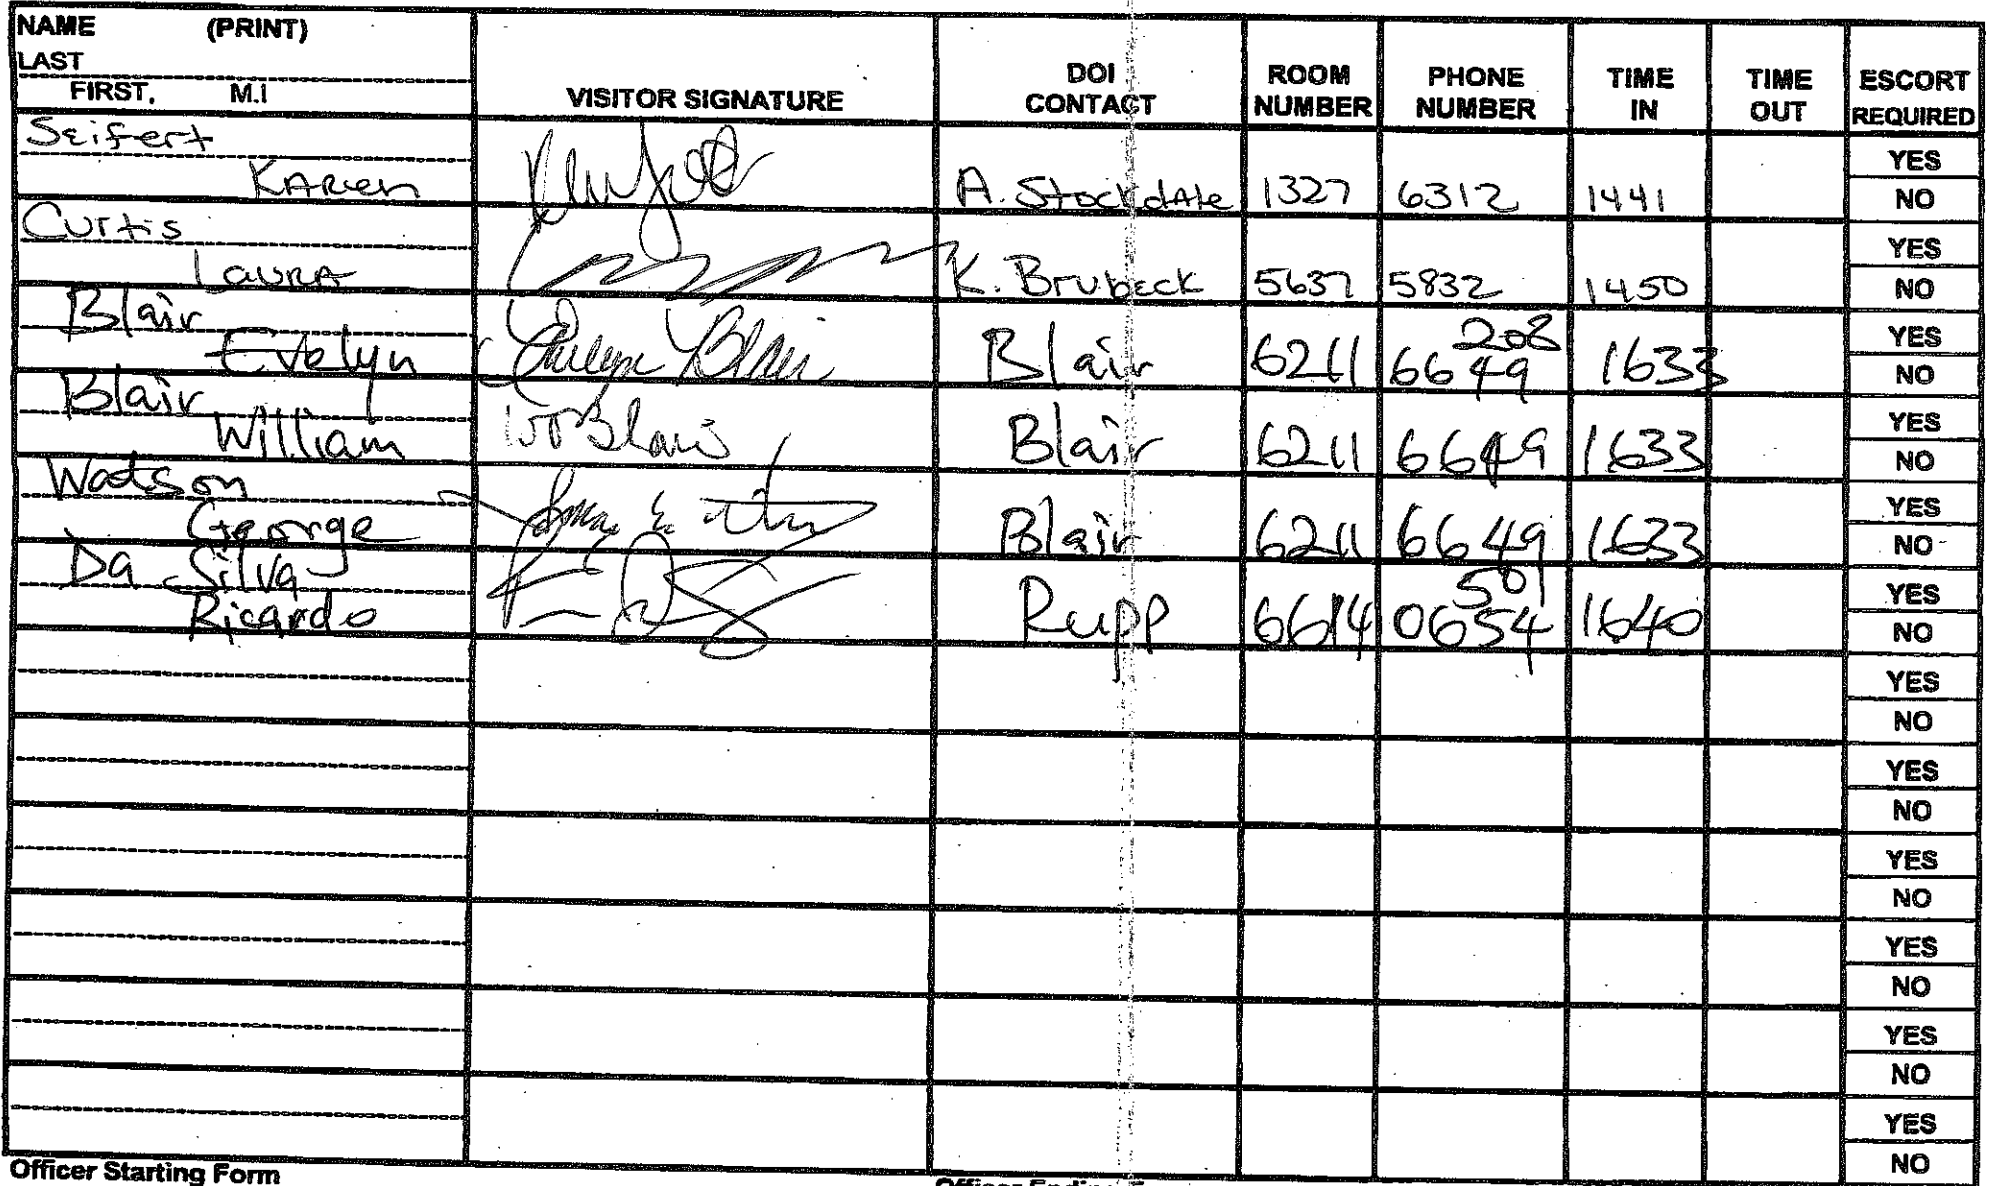 NAME (PRINT)
LAST
FIRST, M.I
VISITOR SIGNATURE
DOI
CONTACT
ROOM
NUMBER
PHONE
NUMBER
TIME
IN
TIME
OUT
ESCORT
REQUIRED
Seifert
YES
Karen A. Stockdale 1327 6312 1441
NO
Curtis
YES
Laura K. Brubeck 5637 5832 1450
NO
Blair 208
YES
Evelyn Evelyn Blair Blair 6211 6649 1633
NO
Blair
YES
William Blair 6211 6649 1633
NO
Watson
YES
George Blair 6211 6649 1633
NO
Da Silva 501
YES
Ricardo Rupp 6614 0654 1640
NO
YES
NO
YES
NO
YES
NO
YES
NO
YES
NO
YES
NO
Officer Starting Form